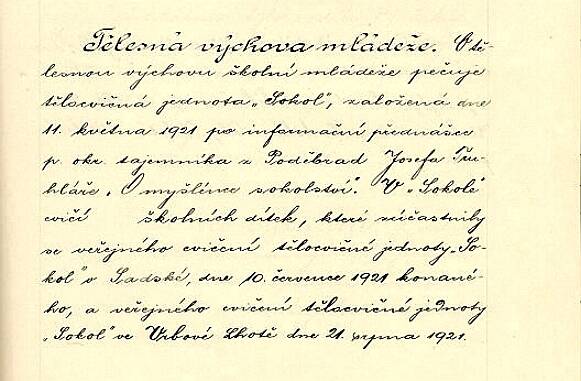 Tělesná výchova mládeže. O tě-
lesnou výchovu školní mládeže pečuje
tělocvičná jednota „Sokol", založená dne
11. května 1921 po informační přednášce
p. okr. tajemníka z Poděbrad Josefa Tru-
hláře „O myšlénce sokolství". V „Sokole"
cvičí školních dítek, které súčastnily
se veřejného cvičení tělocvičné jednoty „So-
kol" v Sadské, dne 10. července 1921 konané-
ho, a veřejného cvičení tělocvičné jednoty
„Sokol" ve Vrbové Lhotě dne 21. srpna 1921.